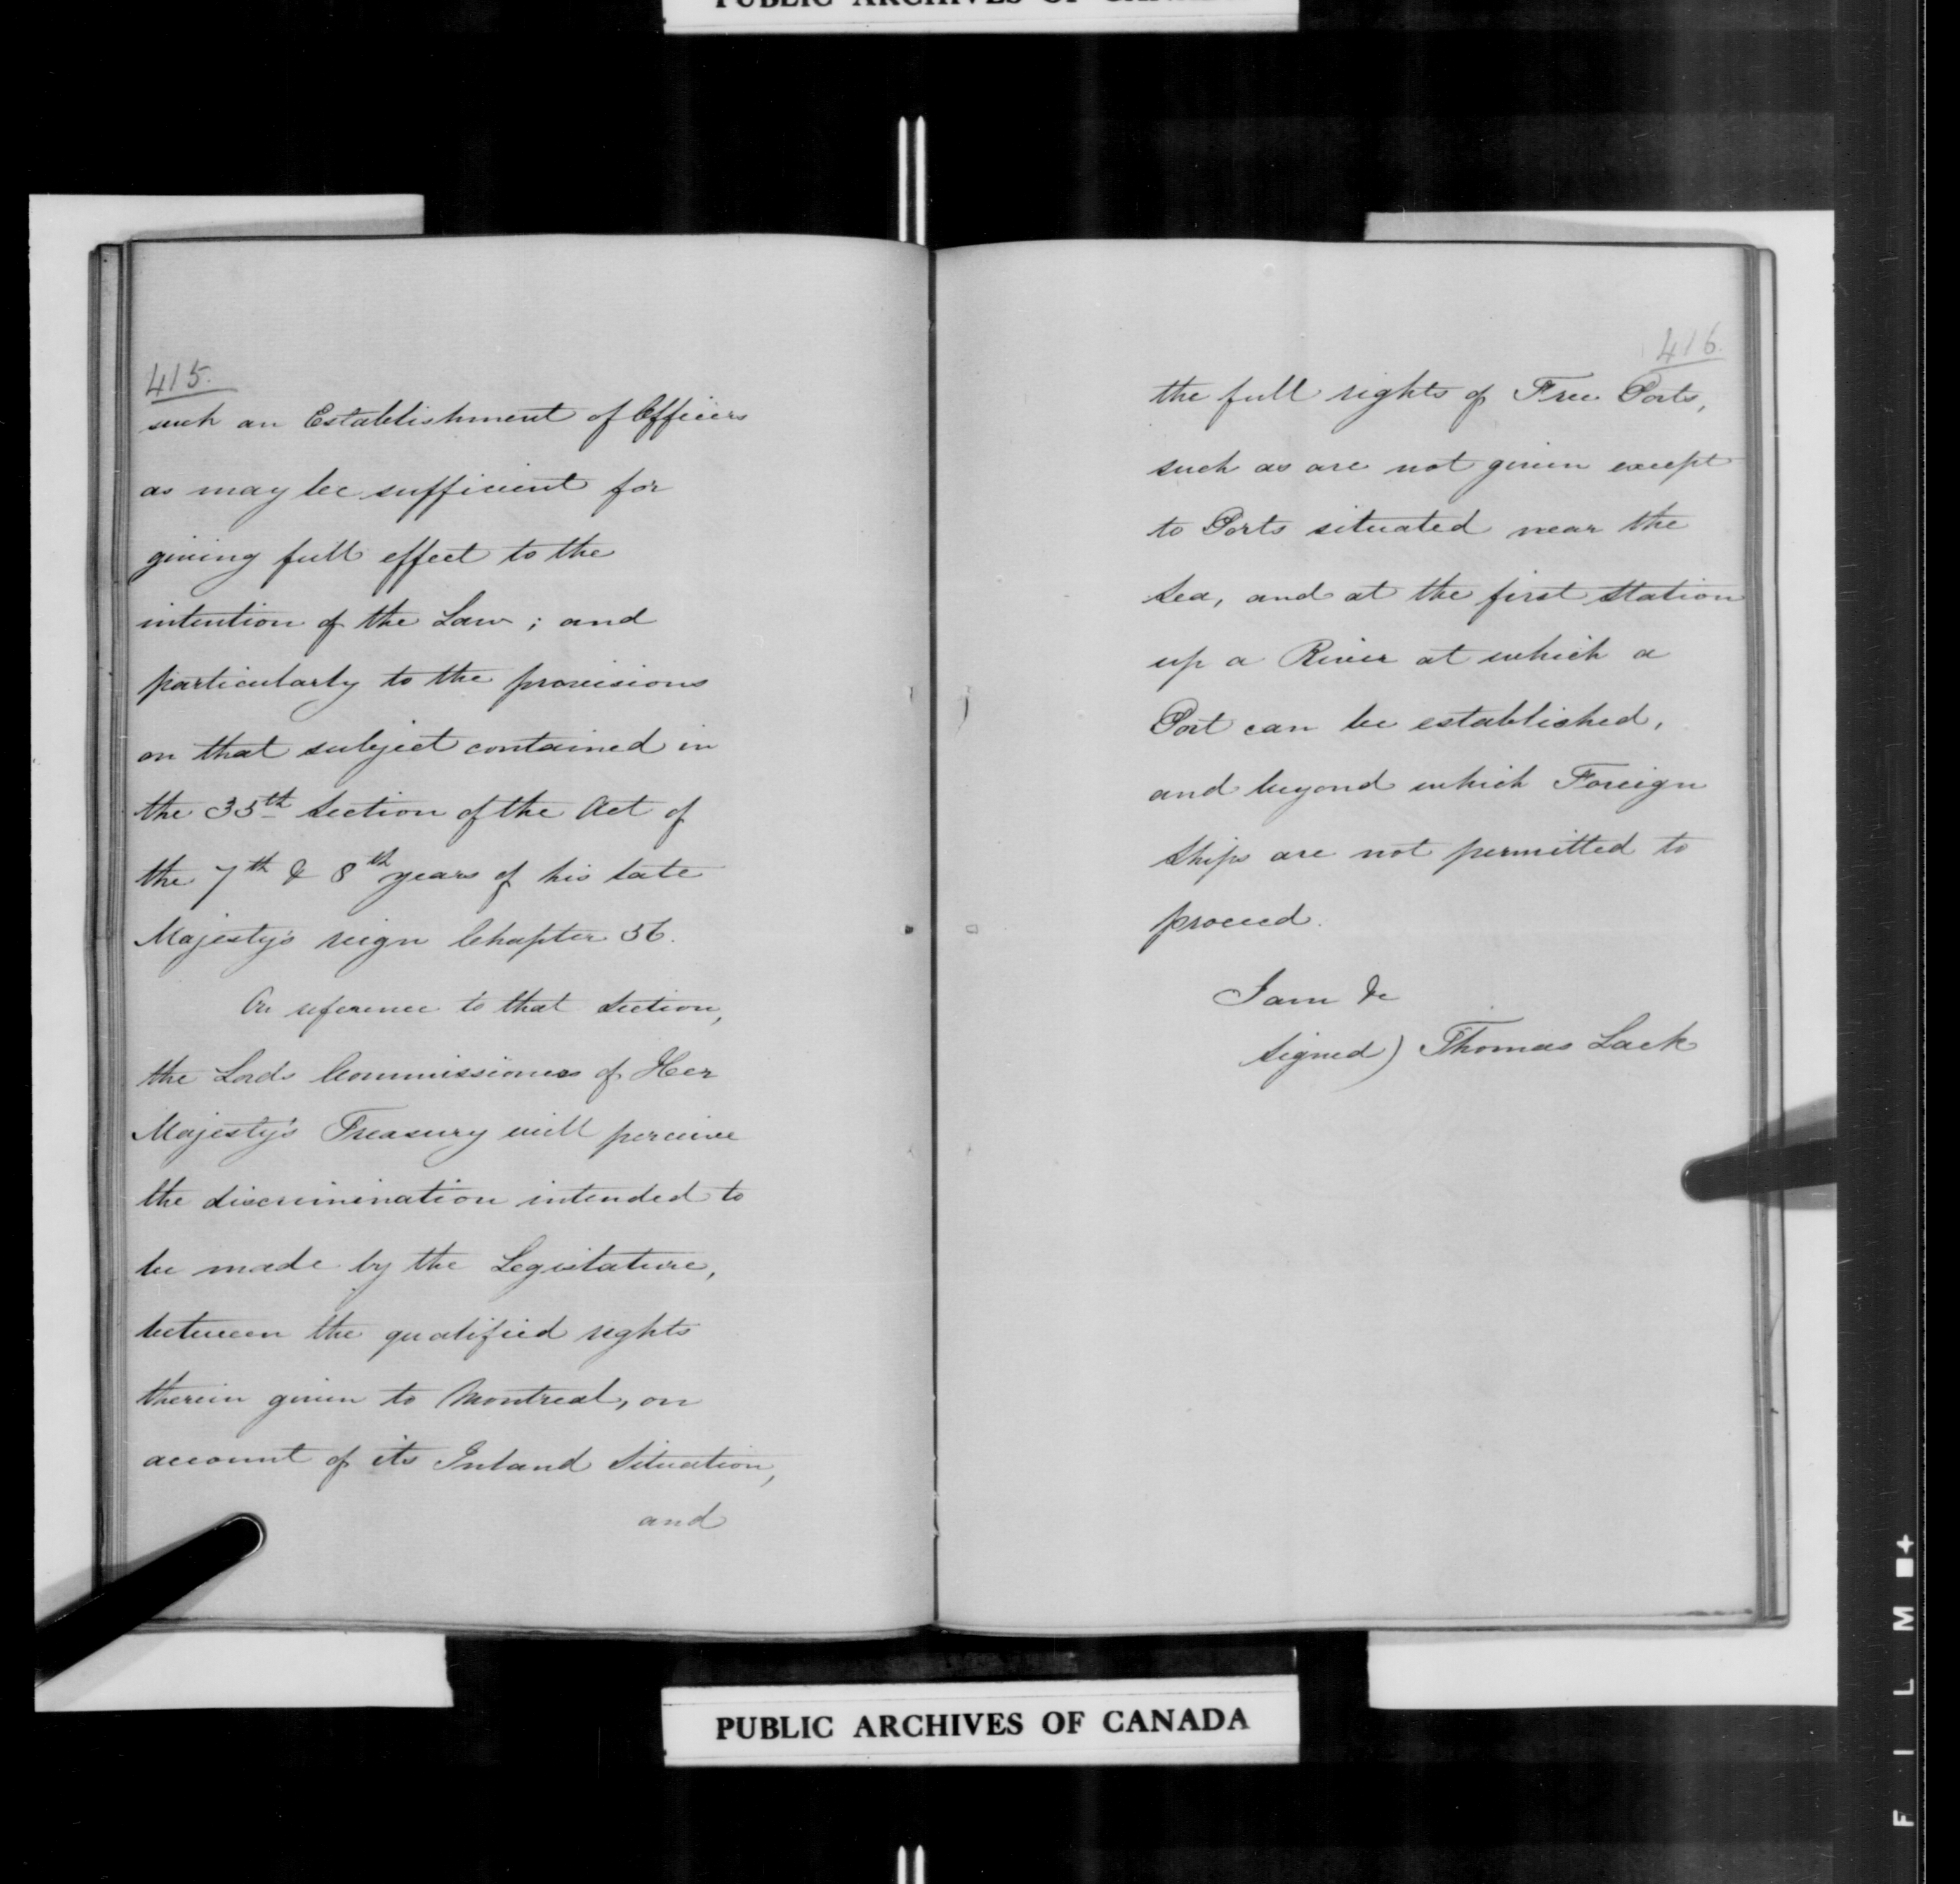 PUBLIC ARCHIVES OF CANADA
415.
such an Establishment of Officers
as may be sufficient for
giving full effect to the
intention of the Law; and
particularly to the provisions
on that subject contained in
the 35th Section of the Act of
the 7th & 8th years of his late
Majesty's reign Chapter 56.
On reference to that Section,
the Lords Commissioners of Her
Majesty's Treasury will perceive
the discrimination intended to
be made by the Legislature,
between the qualified rights
therein given to Montreal, on
account of its Inland Situation,
and
416.
the full rights of Free Ports,
such as are not given except
to Ports situated near the
Sea, and at the first Station
up a River at which a
Port can be established,
and beyond which Foreign
Ships are not permitted to
proceed.
I am &c
Signed) Thomas Lack
PUBLIC ARCHIVES OF CANADA
FILM